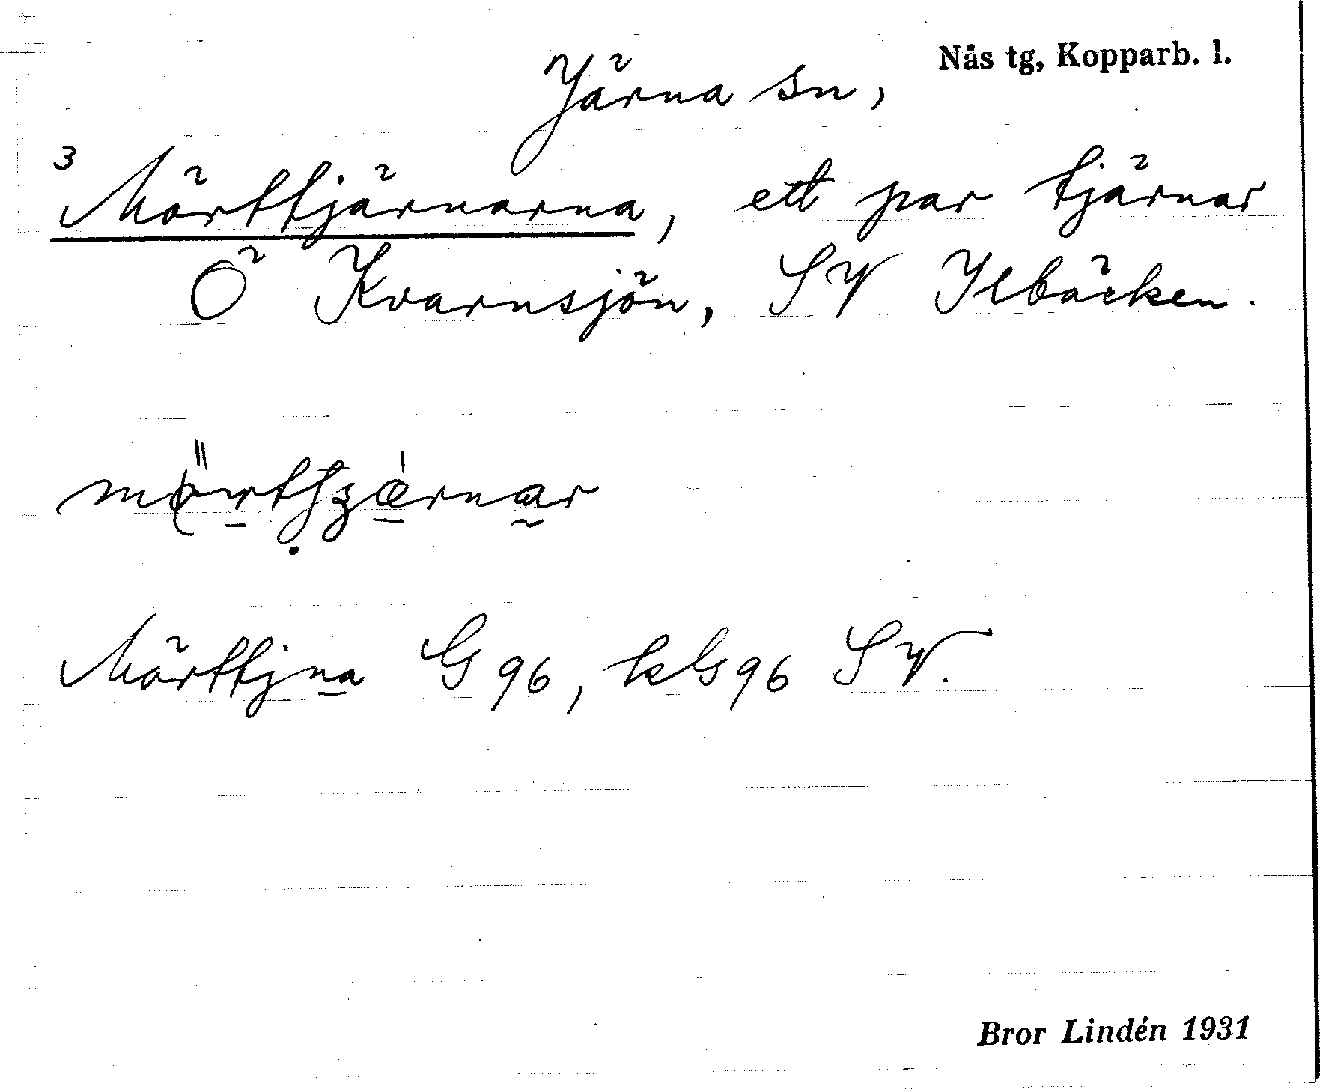 Nås tg, Kopparb. l.
Järna sn,
3 Mörttjärnarna, ett par tjärnar
Ö Kvarnsjön, SV Ilbäcken.
Mörttjna G 96, kG 96 SV.
Bror Lindén 1931